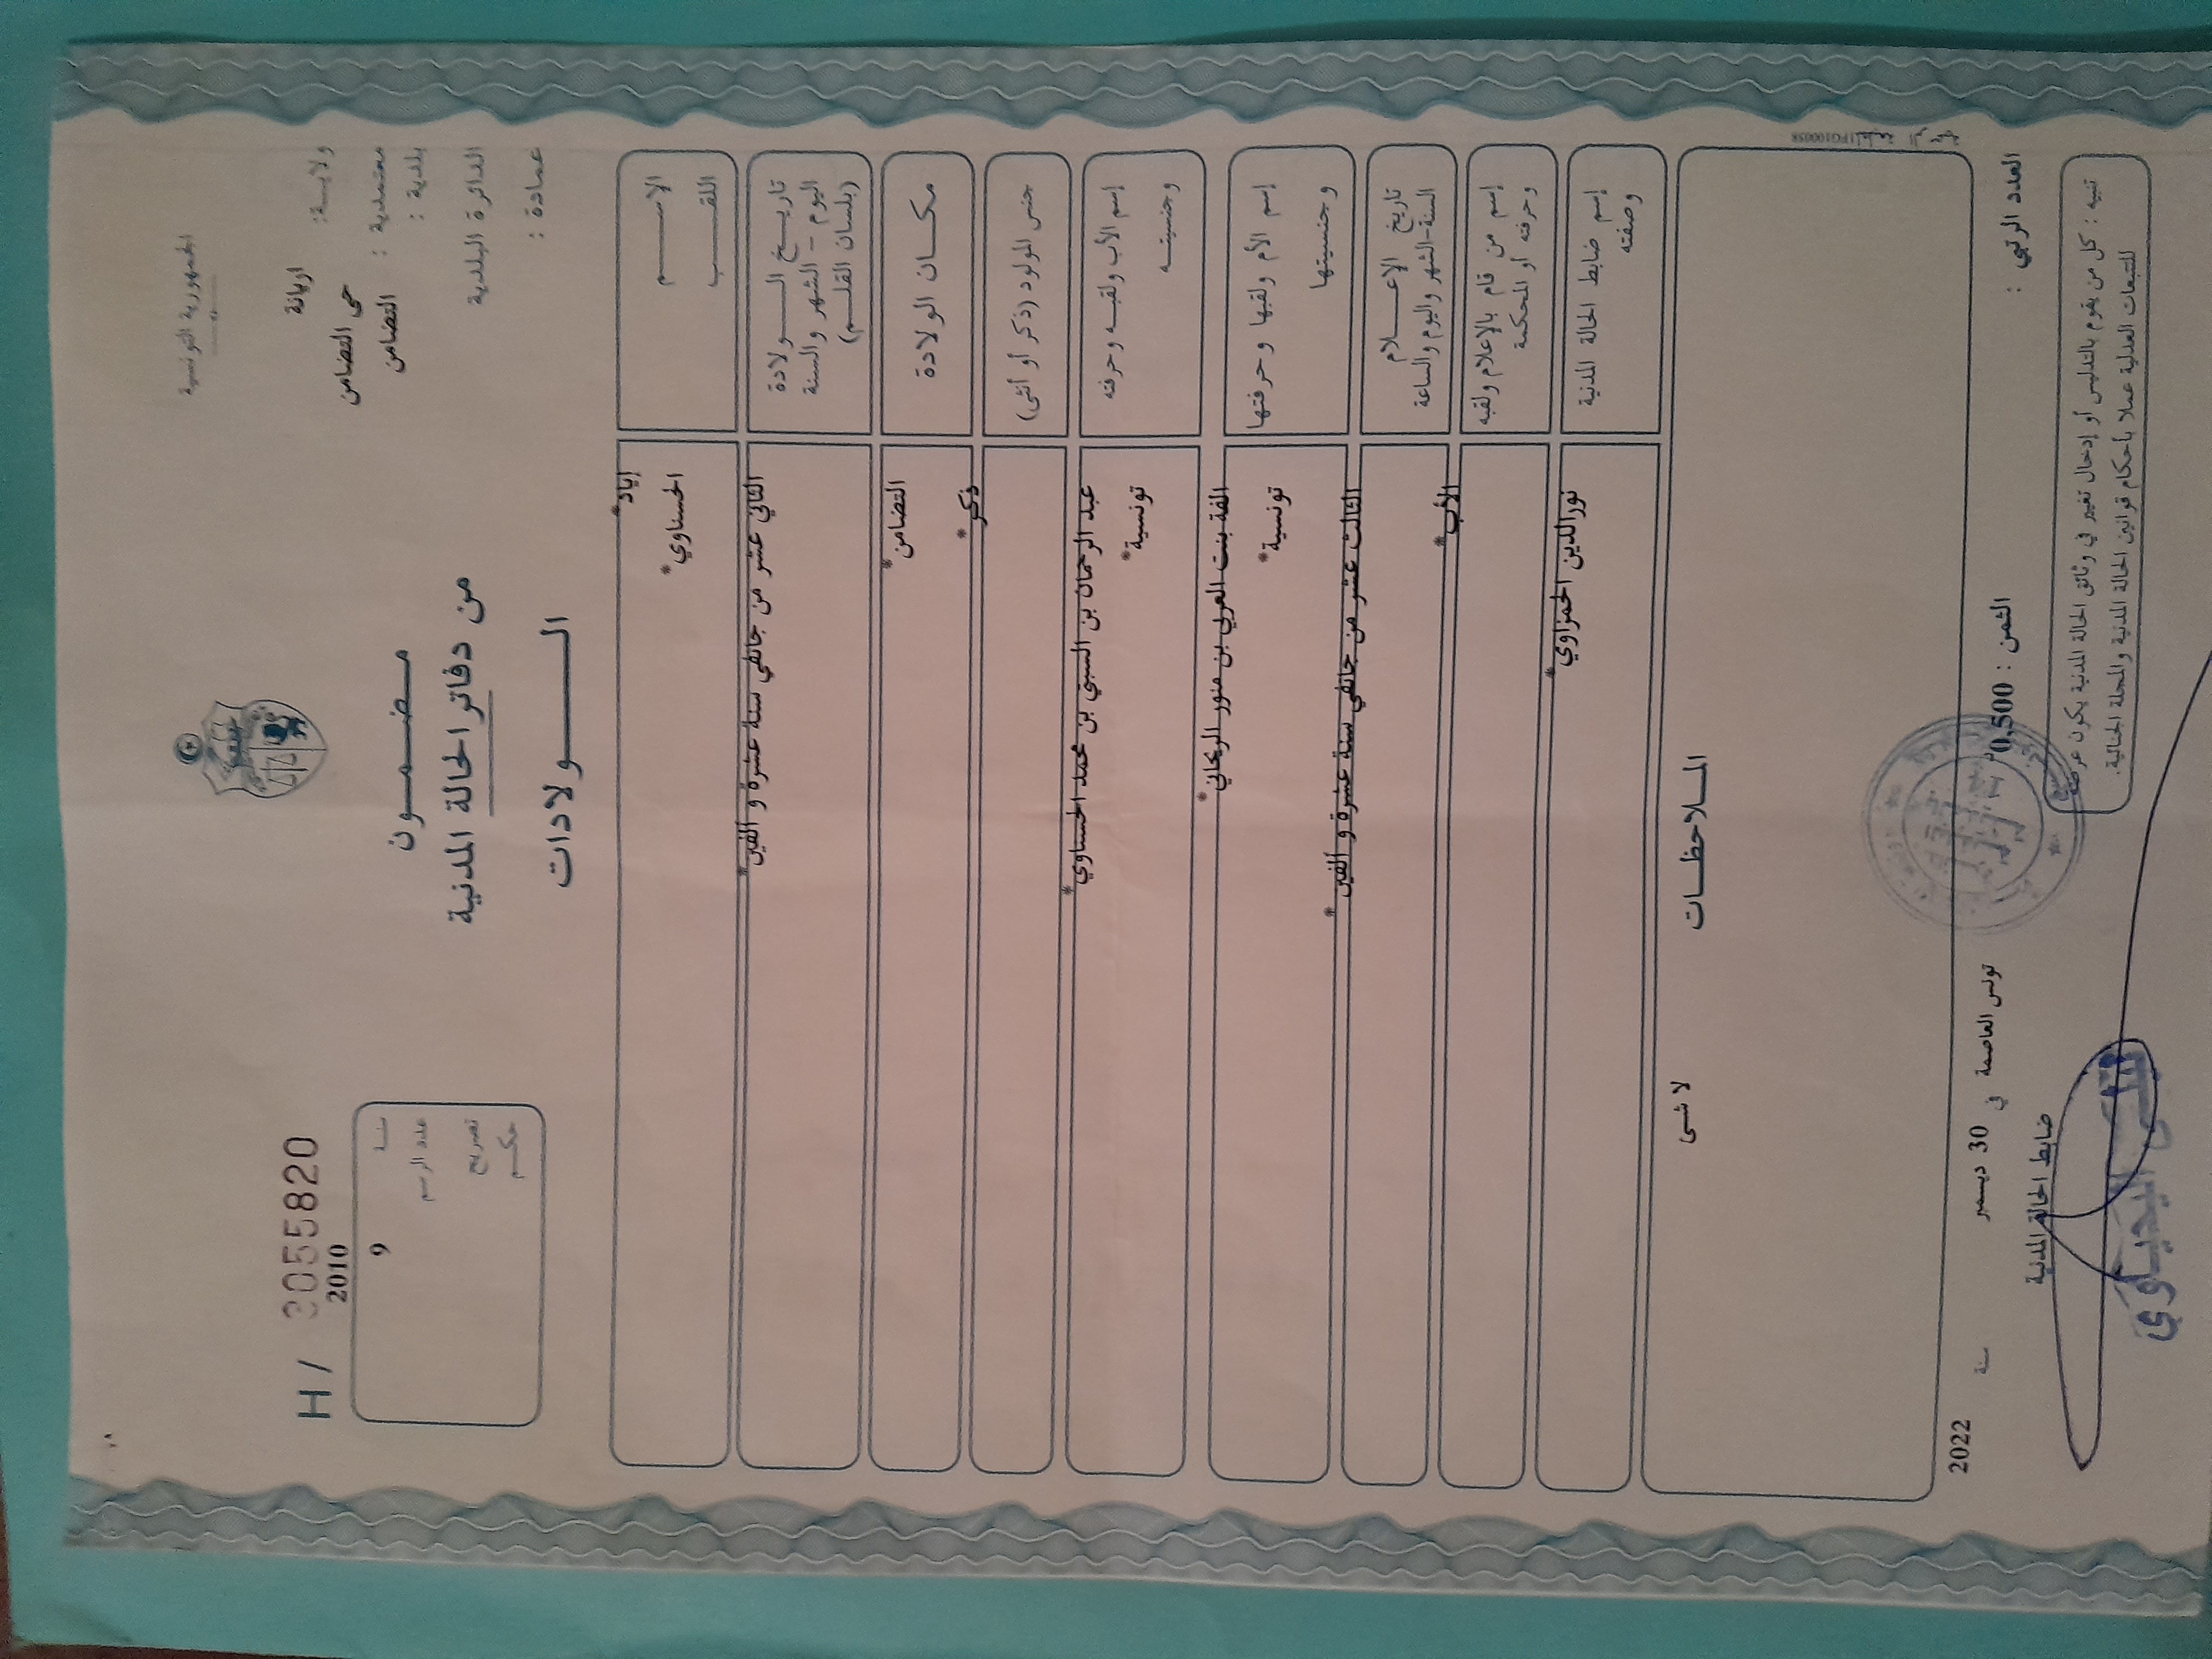 الجمهورية التونسية
ولاية: اريانة
معتمدية : حي التضامن
بلدية : التضامن
الدائرة البلدية
عمادة :
H / 3055820
2010
سنة
9
عدد الرسم
تصريح
حكم
مضمون
من دفاتر الحالة المدنية
الولادات
الاسم
إياد*
اللقب
الحسناوي*
تاريخ الولادة
اليوم - الشهر والسنة
(بلسان القلم)
الثاني عشر من جانفي سنة عشرة و ألفين*
مكان الولادة
التضامن*
جنس المولود (ذكر أو أنثى)
ذكر*
إسم الأب ولقبه وحرفته
عبد الرحمان بن السبتي بن محمد الحسناوي*
وجنسيته
تونسية*
إسم الأم ولقبها وحرفتها
الفة بنت العربي بن منور الريحاني*
وجنسيتها
تونسية*
تاريخ الاعلام
السنة-الشهر واليوم والساعة
الثالث عشر من جانفي سنة عشرة و ألفين*
إسم من قام بالإعلام ولقبه
وحرفته أو المحكمة
الأب*
إسم ضابط الحالة المدنية
وصفته
نورالدين الحمزاوي*
الملاحظات
لا شئ
العدد الرتبي :
الثمن : 0,500د
تونس العاصمة في 30 ديسمبر سنة 2022
ضابط الحالة المدنية
تنبيه : كل من يقوم بالتدليس أو إدخال تغيير في وثائق الحالة المدنية يكون عرضة
للتتبعات العدلية عملا بأحكام قوانين الحالة المدنية والمجلة الجنائية.